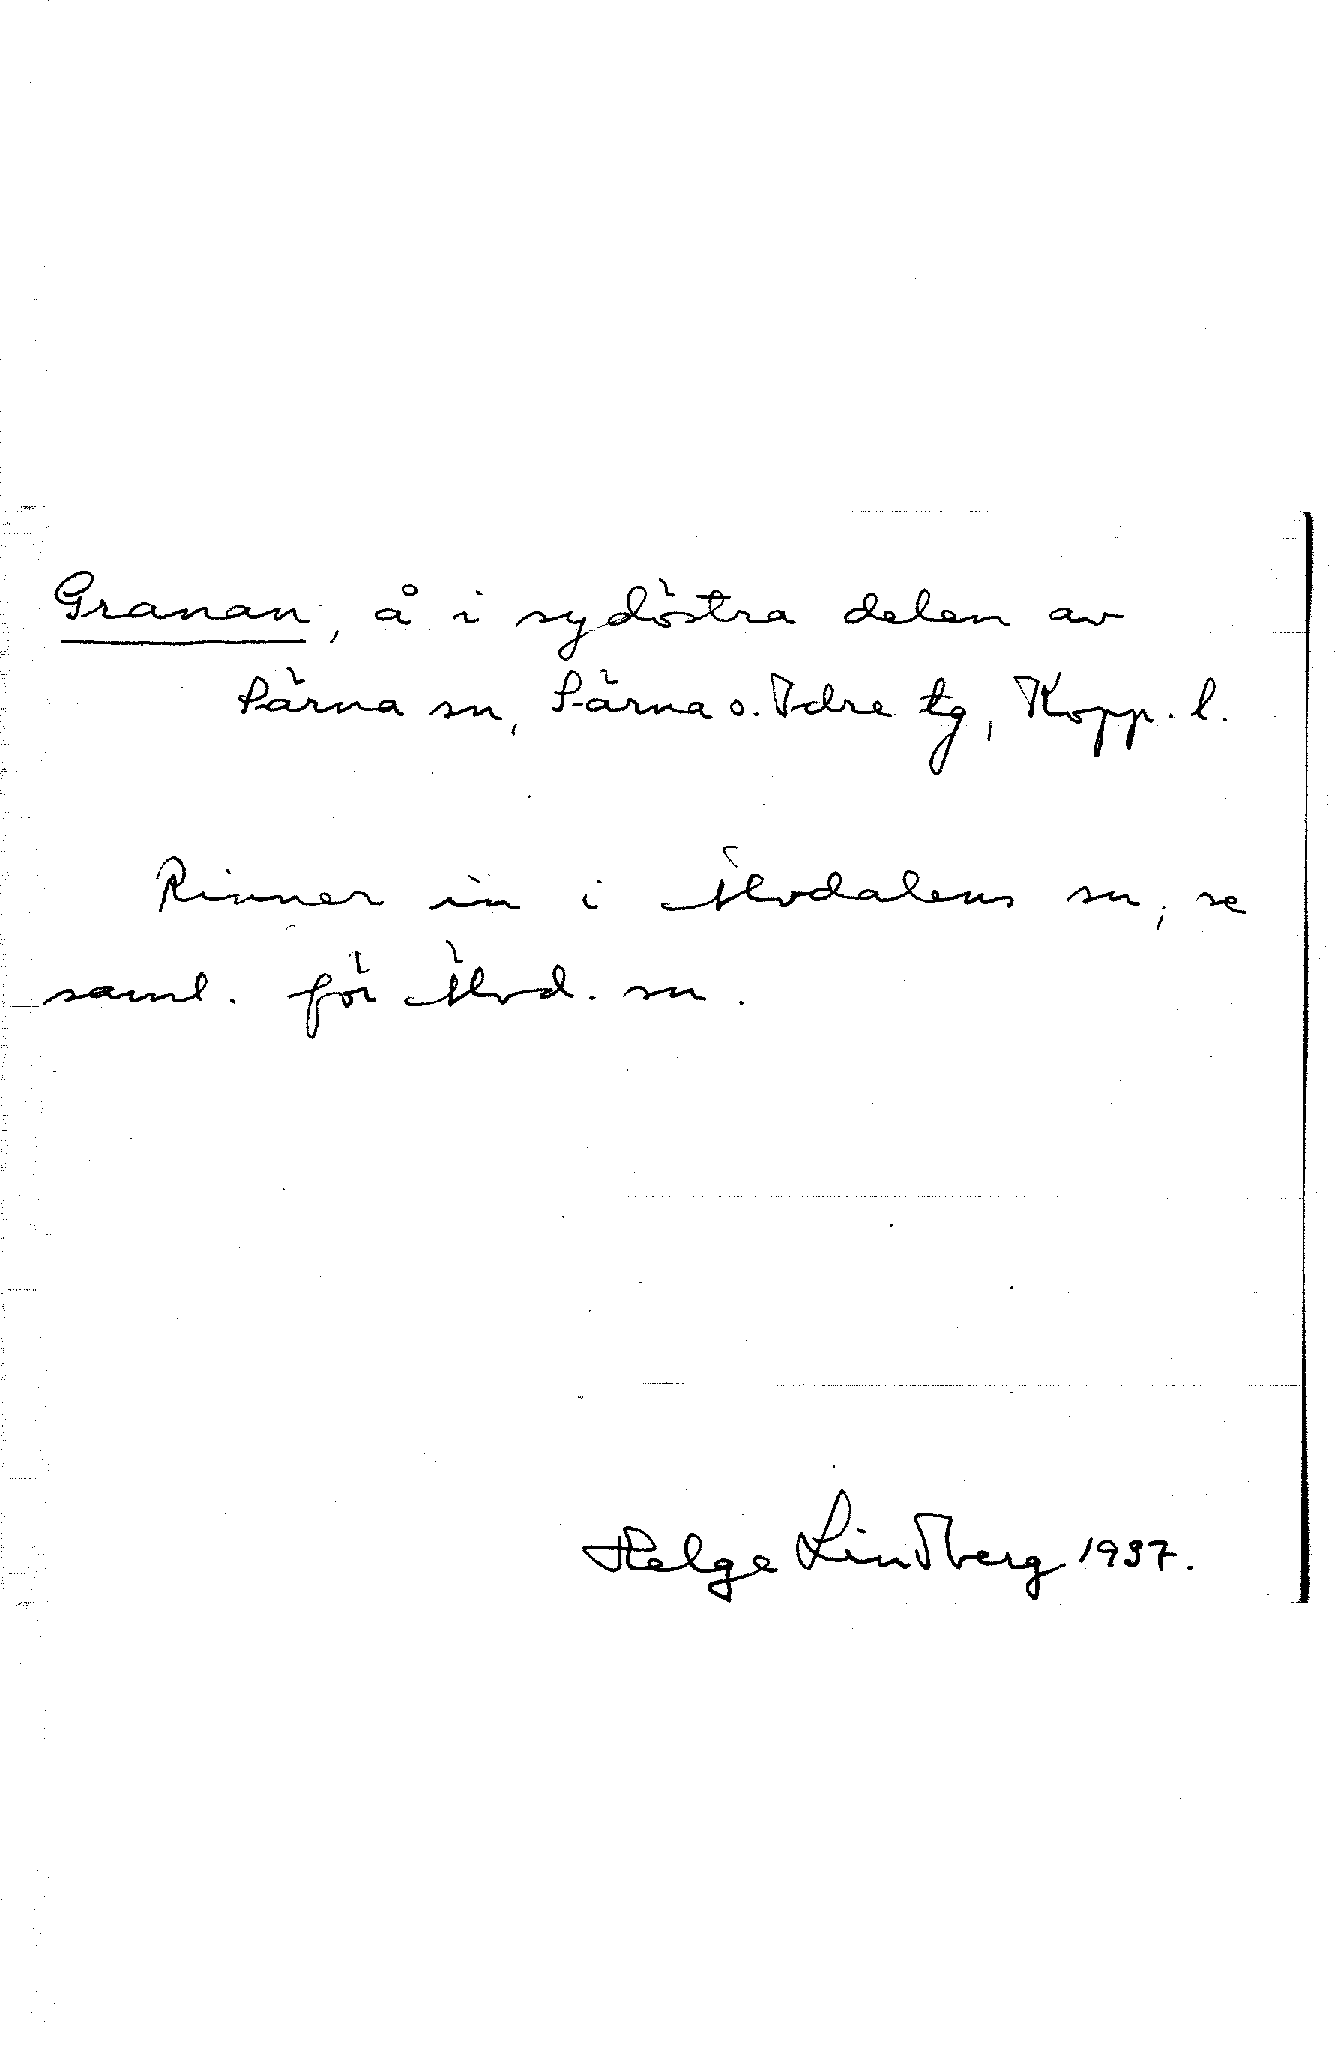 Granan, å i sydöstra delen av
Särna sn, Särna o. Idre tg, Kopp. l.
Rinner in i Älvdalens sn, se
saml. för Älvd. sn.
Helge Lindberg 1937.